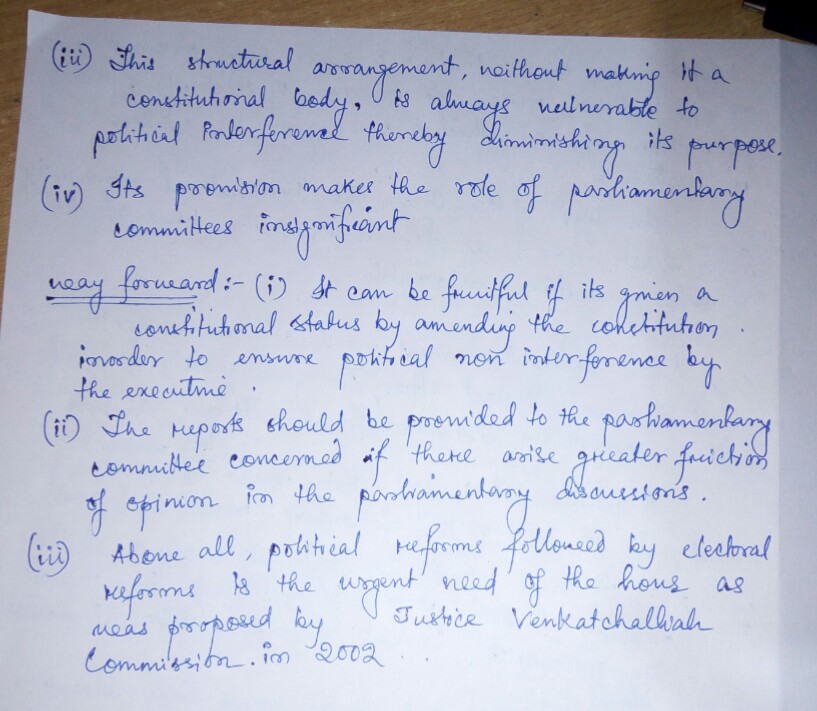 (iii) This structural arrangement, without making it a
constitutional body, is always vulnerable to
political interference thereby diminishing its purpose.
(iv) Its provision makes the role of parliamentary
committees insignificant
way forward :- (i) It can be fruitful if its given a
constitutional status by amending the constitution .
inorder to ensure political non interference by
the executive .
(ii) The reports should be provided to the parliamentary
committee concerned if there arise greater friction
of opinion in the parliamentary discussions .
(iii) Above all , political reforms followed by electoral
reforms is the urgent need of the hour as
was proposed by Justice Venkatchalliah
Commission . in 2002 . .